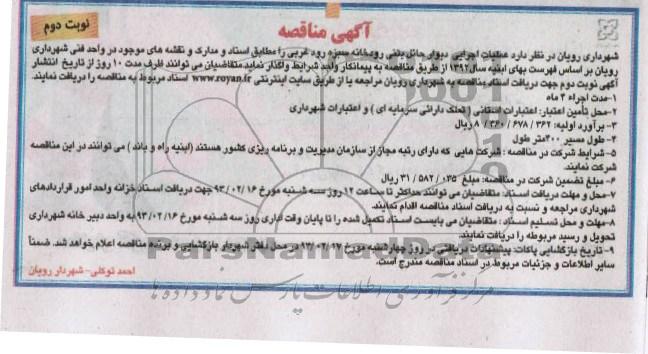 آگهی مناقصه
نوبت دوم
شهرداری رویان در نظر دارد عملیات اجرایی دیوار حائل بتنی رودخانه سبزه رود غربی را مطابق اسناد و مدارک و نقشه های موجود در واحد فنی شهرداری
رویان بر اساس فهرست بهای ابنیه سال ۱۳۹۲ از طریق مناقصه به پیمانکار واجد شرایط واگذار نماید. متقاضیان می توانند ظرف مدت ۱۰ روز از تاریخ انتشار
آگهی نوبت دوم جهت دریافت اسناد مناقصه به شهرداری رویان مراجعه یا از طریق سایت اینترنتی www.royan.ir اسناد مربوط به مناقصه را دریافت نمایند.
۱-مدت اجراء ۴ ماه
۲-محل تأمین اعتبار: اعتبارات استانی ( تملک دارائی سرمایه ای ) و اعتبارات شهرداری
۳- برآورد اولیه: ۸/۳۶۰/۶۷۸/۳۶۲ ریال
۴- طول مسیر ۴۰۰ متر طول
۵-شرایط شرکت در مناقصه : شرکت هایی که دارای رتبه مجاز از سازمان مدیریت و برنامه ریزی کشور هستند (ابنیه راه و باند ) می توانند در این مناقصه
شرکت نمایند.
۶-مبلغ تضمین شرکت در مناقصه: مبلغ ۰۳۵/ ۵۸۲/ ۳۱ ریال
۷-محل و مهلت دریافت اسناد: متقاضیان می توانند حداکثر تا ساعت ۱۲ روز سه شنبه مورخ ۹۳/۰۲/۱۶ جهت دریافت اسناد خزانه واحد امور قراردادهای
شهرداری مراجعه و نسبت به دریافت اسناد مناقصه اقدام نمایند.
۸-مهلت و محل تسلیم اسناد : متقاضیان می بایست اسناد تکمیل شده را تا پایان وقت اداری روز سه شنبه مورخ ۹۳/۰۲/۱۶ به واحد دبیر خانه شهرداری
تحویل و رسید مربوطه را دریافت نمایند.
۹- تاریخ بازگشایی پاکات: پیشنهادات دریافتی در روز چهارشنبه مورخ ۹۳/۰۲/۱۷ در محل دفتر شهردار بازگشایی و برنده مناقصه اعلام خواهد شد. ضمناً
سایر اطلاعات و جزئیات مربوط در اسناد مناقصه مندرج است.
احمد توکلی- شهردار رویان
ParsNamadData
مرکز فرآوری اطلاعات پارس نماد داده ها